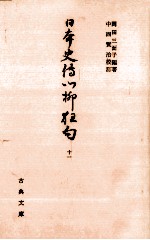 岡田三面子編著
中西賢治校訂
日本史傳川柳狂句
十一
古典文庫